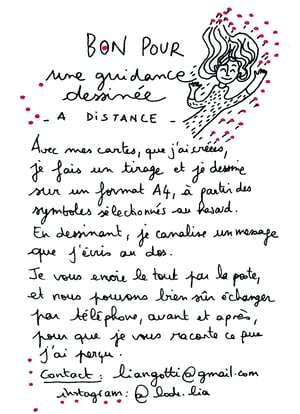 BON POUR
une guidance
dessinée
- A DISTANCE -
Avec mes cartes, que j'ai créées,
je fais un tirage et je dessine
sur un format A4, à partir des
symboles sélectionnés au hasard.
En dessinant, je canalise un message
que j'écris au dos.
Je vous envoie le tout par la poste,
et nous pouvons bien sûr échanger
par téléphone, avant et après,
pour que je vous raconte ce que
j'ai perçu.
Contact : liangotti@gmail.com
instagram : @lode.lia